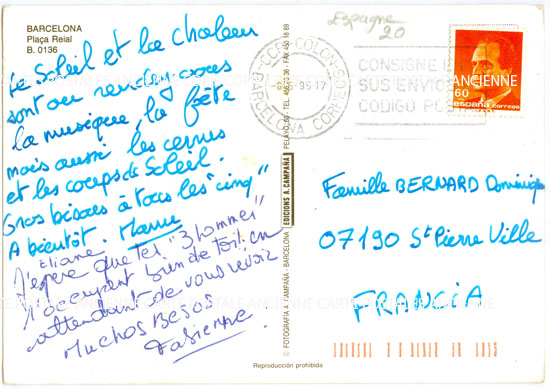 BARCELONA
Plaça Reial
B. 0136
Le Soleil et la chaleur
sont au rendez vous
la musique, la fête
mais aussi les cernes
et les coups de Soleil.
Gros bisous à tous les "cinq"
A bientôt.
Eliane,
J'espère que tes "3 hommes"
s'occupent bien de toi, en
attendant de vous revoir
MUCHOS BESOS
Fabienne.
EDICIONS A. CAMPAÑA
© FOTOGRAFIA A. CAMPAÑA - BARCELONA
Reproducción prohibida
Espagne
20
BARCELONA
CONSIGNE
SUS ENVIOS
CODIGO POS
60
españa correos
Famille BERNARD Dominique
07190 St Pierre Ville
FRANCIA